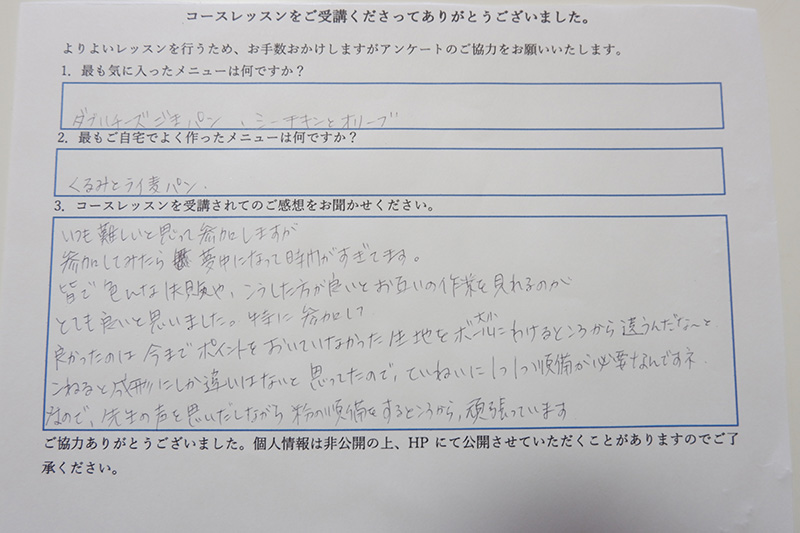 コースレッスンをご受講くださってありがとうございました。
よりよいレッスンを行うため、お手数おかけしますがアンケートのご協力をお願いいたします。
1. 最も気に入ったメニューは何ですか？
ダブルチーズごまパン、シーチキンとオリーブ
2. 最もご自宅でよく作ったメニューは何ですか？
くるみとライ麦パン.
3. コースレッスンを受講されてのご感想をお聞かせください。
いつも難しいと思って参加しますが
参加してみたら 夢中になって時間がすぎてます。
皆で色んな失敗や、こうした方が良いとお互いの作業を見れるのが
とても良いと思いました。特に参加して
良かったのは今までポイントをおいていなかった生地をボール大小にわけるところから違うんだな〜と
こねると成形にしか違いはないと思ってたので、ていねいに1つ1つ順備が必要なんですネ.
なので、先生の声を思いだしながら粉の順備をするところから、頑張っています
ご協力ありがとうございました。個人情報は非公開の上、HP にて公開させていただくことがありますのでご了
承ください。